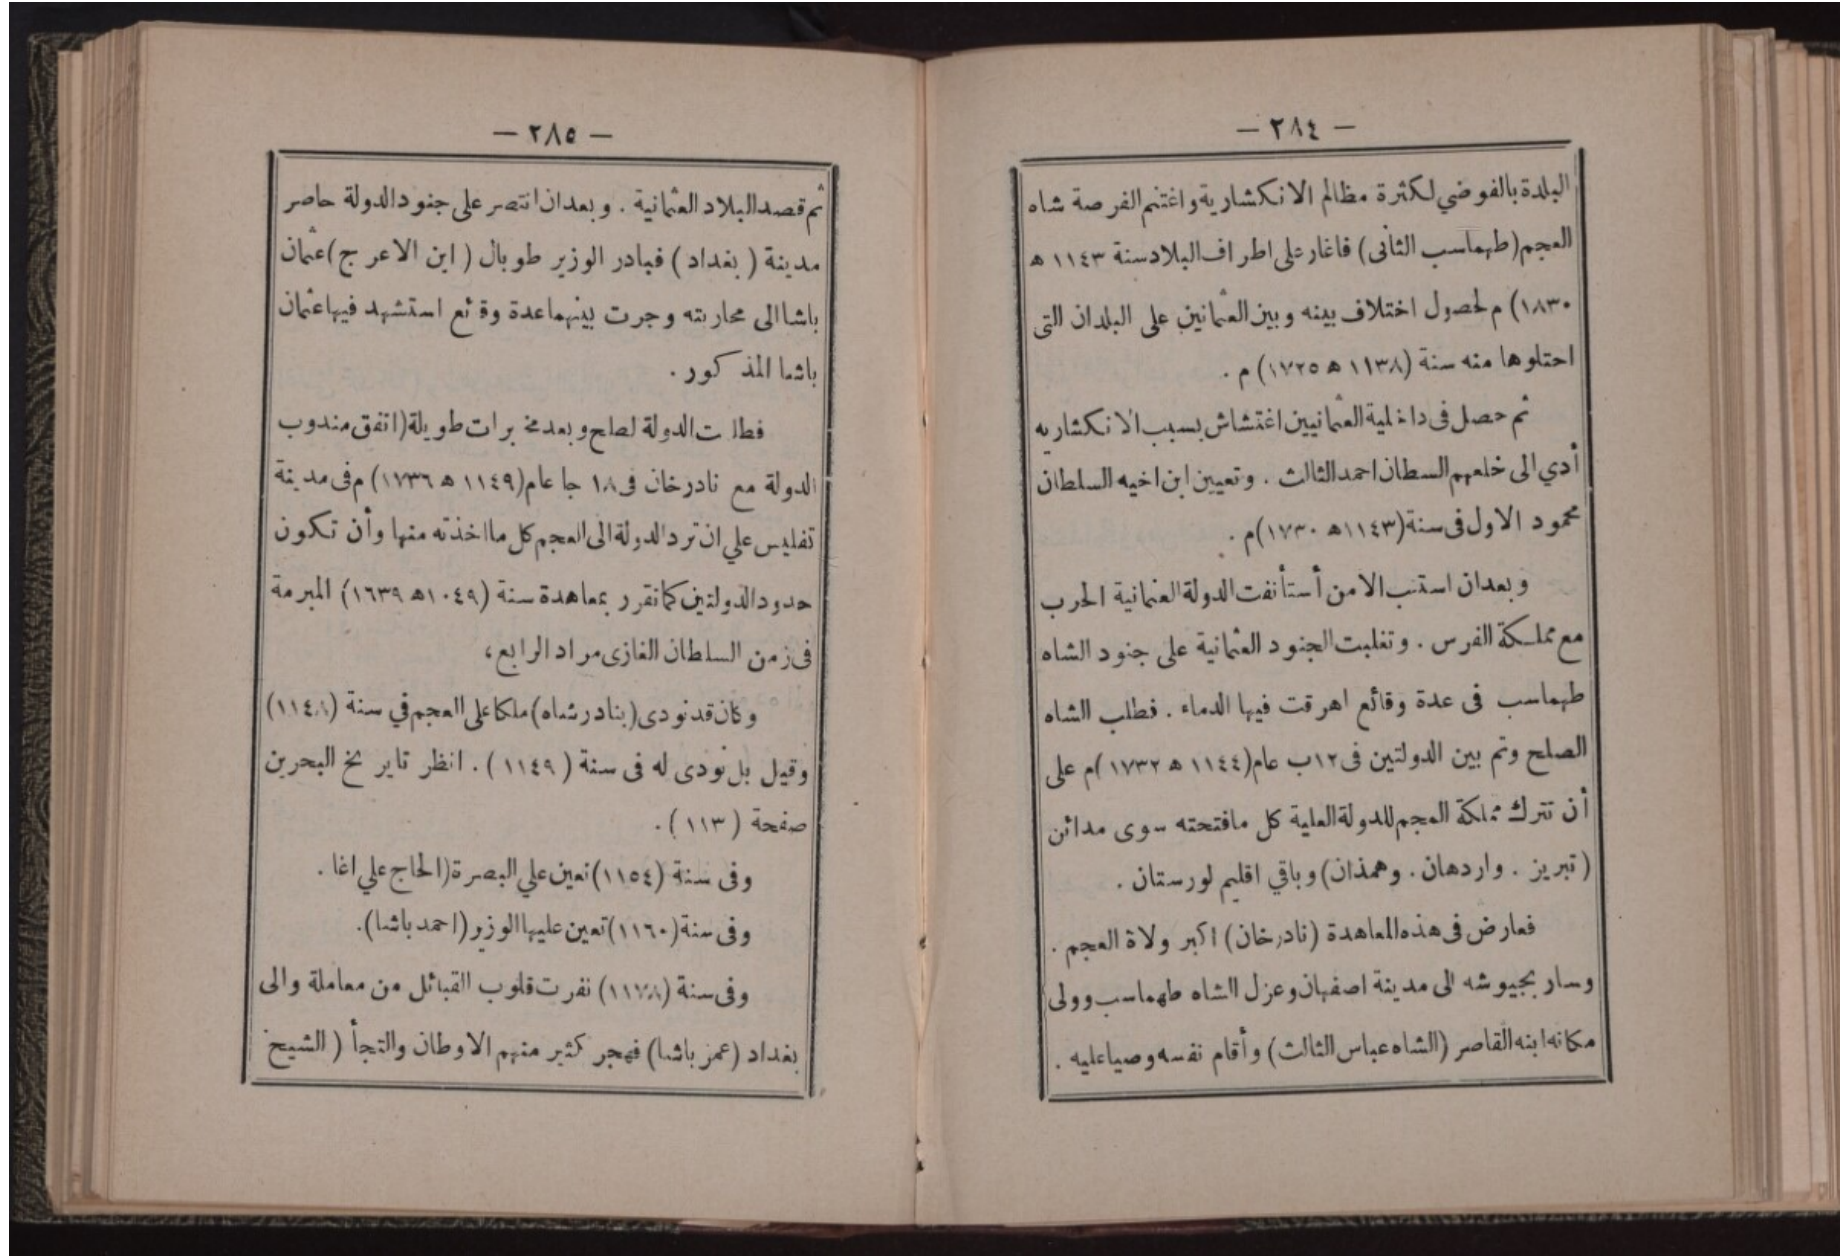 — ٢٨٤ —
البلدة بالفوضي لكثرة مظالم الانكشارية واغتنم الفرصة شاه
العجم (طهماسب الثانى) فاغار على اطراف البلاد سنة ١١٤٣ ه
١٨٣٠) م لحصول اختلاف بينه وبين العثمانين على البلدان التى
احتلوها منه سنة (١١٣٨ ه ١٧٢٥) م .
ثم حصل فى داخلية العثمانيين اغتشاش بسبب الانكشاريه
أدي الى خلعهم السطان احمد الثالث . وتعيين ابن اخيه السلطان
محمود الاول فى سنة (١١٤٣ه ١٧٣٠) م .
وبعد ان استتب الامن أستأنفت الدولة العثمانية الحرب
مع مملكة الفرس . وتغلبت الجنود العثمانية على جنود الشاه
طهماسب فى عدة وقائع اهرقت فيها الدماء . فطلب الشاه
الصلح وتم بين الدولتين فى ١٢ب عام (١١٤٤ ه ١٧٣٢) م على
أن تترك مملكة العجم للدولة العلية كل مافتحته سوى مدائن
(تبريز . واردهان . وهمذان) وباقي اقليم لورستان .
فعارض فى هذه المعاهدة (نادرخان) اكبر ولاة العجم .
وسار بجيوشه الى مدينة اصفهان وعزل الشاه طهماسب وولى
مكانه ابنه القاصر (الشاه عباس الثالث) وأقام نفسه وصيا عليه .
— ٢٨٥ —
ثم قصد البلاد العثمانية . وبعد ان انتصر على جنود الدولة حاصر
مدينة ( بغداد ) فبادر الوزير طوبال ( ابن الاعرج ) عثمان
باشا الى محاربته وجرت بينهما عدة وقائع استشهد فيها عثمان
باشا المذكور .
فطلبت الدولة لصلح وبعد مخابرات طويلة (اتفق مندوب
الدولة مع نادرخان فى ١٨ جا عام (١١٤٩ ه ١٧٣٦) م فى مدينة
تفليس علي ان ترد الدولة الى العجم كل مااخذته منها وأن تكون
حدود الدولتين كما تقرر بمعاهدة سنة (١٠٤٩ه ١٦٣٩) المبرمة
فى زمن السلطان الغازى مراد الرابع،
وكان قد نودى (بنادرشاه) ملكا على العجم في سنة (١١٤٨)
وقيل بل نودى له فى سنة ( ١١٤٩ ) . انظر تاير يخ البحرين
صفحة ( ١١٣ ) .
وفى سنة (١١٥٤) تعين علي البصرة (الحاج علي اغا .
وفى سنة (١١٦٠) تعين عليها الوزير (احمد باشا).
وفى سنة (١١٧٨) نفرت قلوب القبائل من معاملة والى
بغداد (عمر باشا) فهجر كثير منهم الاوطان والتجأ ( الشيخ